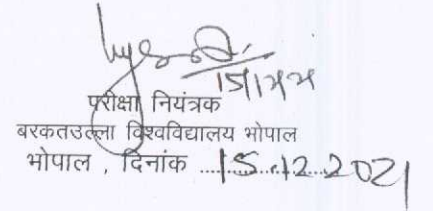 परीक्षा नियंत्रक
बरकतउल्ला विश्वविद्यालय भोपाल
भोपाल , दिनांक ..15.12.2021